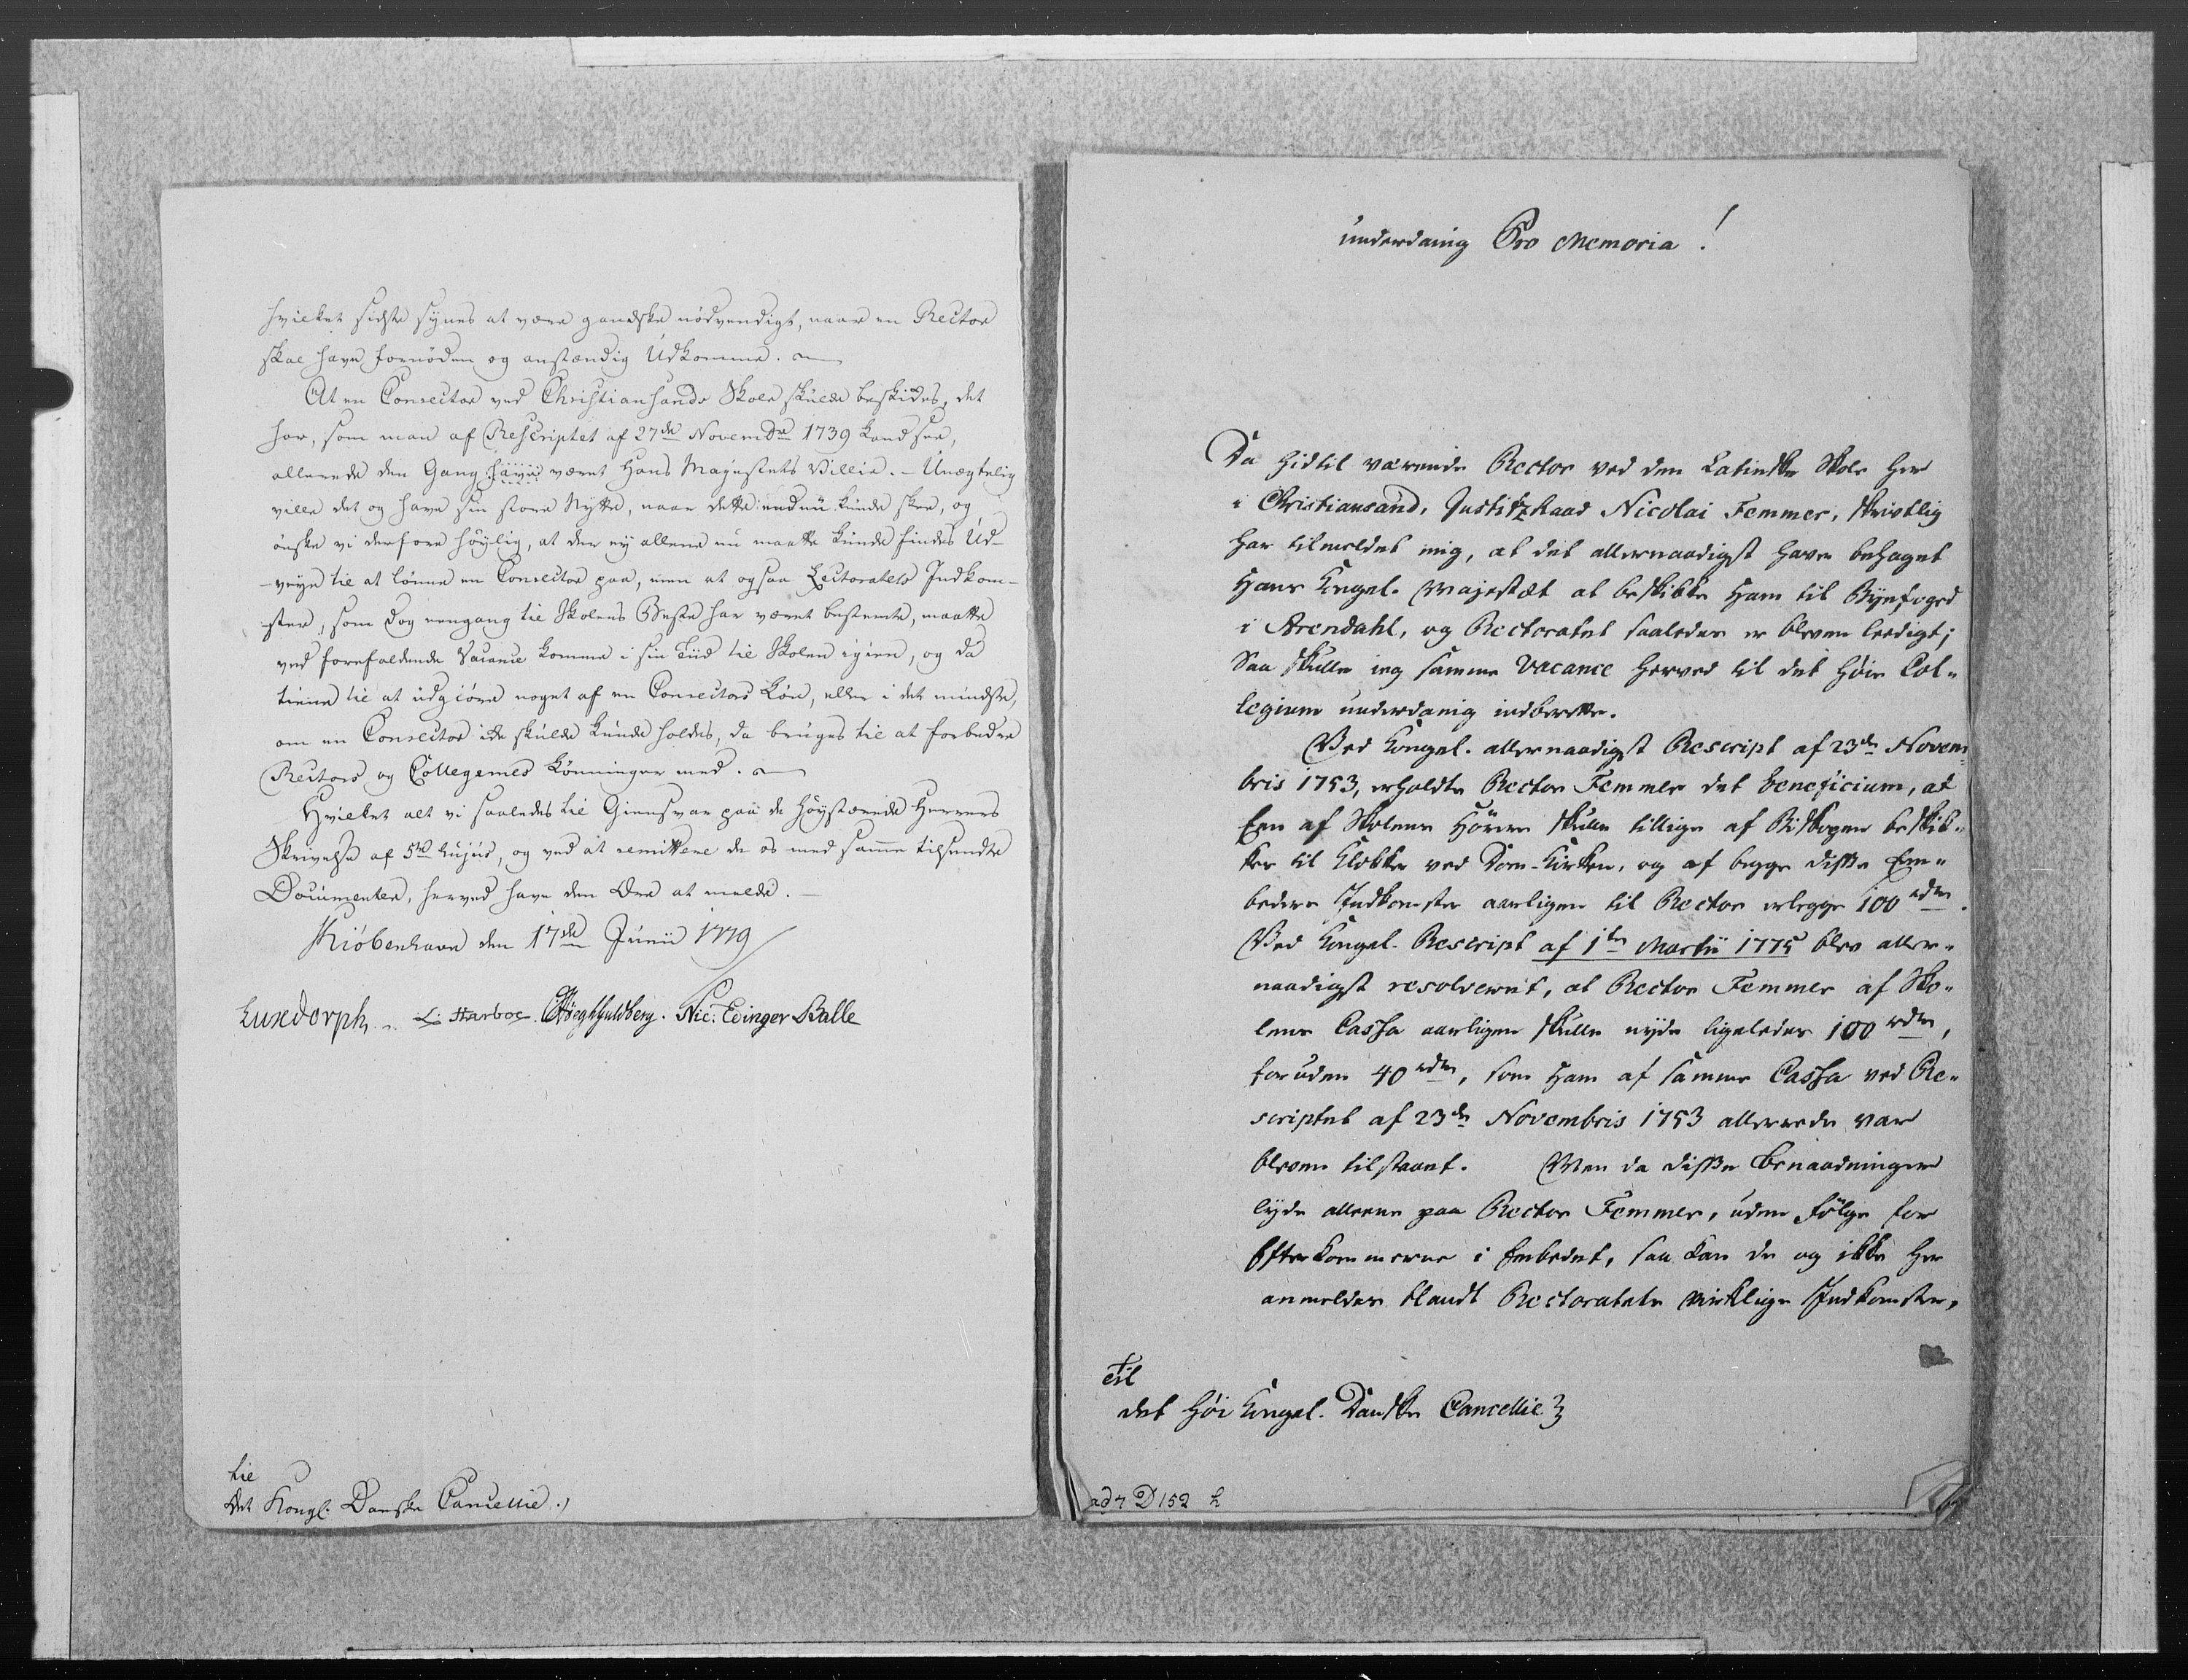 hvilket sidste synes at være gandske nödvendigt, naar en Rector
skal have fornöden og anstændig Udkomme.
At en Conrector ved Christiansands Skole skulde beskikkes, det
har, som man af Rescriptet af 27de Novembr 1739 kand see,
allerede den Gang været Hans Majestets Villie. - Unægtelig
ville det og have sin store Nytte, naar dette endnu kunde skee, og
önske vi derfore höylig, at der ey allene nu maatte kunde findes Ud-
-veye til at lönne en Conrector paa, men at ogsaa Lectoratets Indkom-
ster, som dog eengang til Skolens Beste har været bestemte, maatte
ved forefaldende Vacance komme i sin Tiid til Skolen igien, og da
tiene til at udgiöre noget af en Conrectors Lön, eller i det mindste,
om en Conrector ide skulde kunde holdes, da bruges til at forbedre
Rectors og Collegernes Lönninger med.
Hvilket alt vi saaledes til Giensvar paa de Höystærede Herrers
Skrivelse af 5te hujus, og ved at remittere de os med samme tilsendte
Documenter, herved have den Ære at melde. -
Kiöbenhavn den 17de Junii 1779
Luxdorph. L: Harboe. OHöeghGuldberg. Nic. Edinger Balle
til
Det Kongl. Danske Cancellie.
underdanig Pro Memoria!
Da hidtil værende Rector ved den Latinske Skole her
i Christiansand, Justitz Raad Nicolai Femmer, skriftlig
har tilmeldet mig, at det allernaadigst have behaget
Hans Kongel. Majestæt at beskikke Ham til Byefoged
i Arendahl, og Rectoratet saaledes er bleven leedigt;
Saa skulle ieg samme Vacance herved til det höie Col-
legium underdanig indberette.
Ved Kongel. allernaadigst Rescript af 23de Novem-
bris 1753, erholdte Rector Femmer det beneficium, at
Een af Skolens Hörere skulle tillige af Biskopen beskik-
kes til Klokker ved Dom-Kirken, og af begge disse Em-
beders Indkomster aarligen til Rector erlegge 100 rdr.
Ved Kongel. Rescript af 1te Martii 1775 blev aller-
naadigst resolveret, at Rector Femmer af Sko-
lens Cassa aarligen skulle nyde ligeledes 100 rdr,
foruden 40 rdr, som Ham af samme Cassa ved Re-
scriptet af 23de Novembris 1753 allerede var
bleven tilstaaet. Men da disse Benaadninger
lyde alleene paa Rector Femmer, uden fölge for
Efterkommerne i Embedet, saa kan de og ikke her
anmeldes blandt Rectoratets virkelige Indkomster,
Til
det höi Kongel. Danske Cancellie
ad 7 D 152